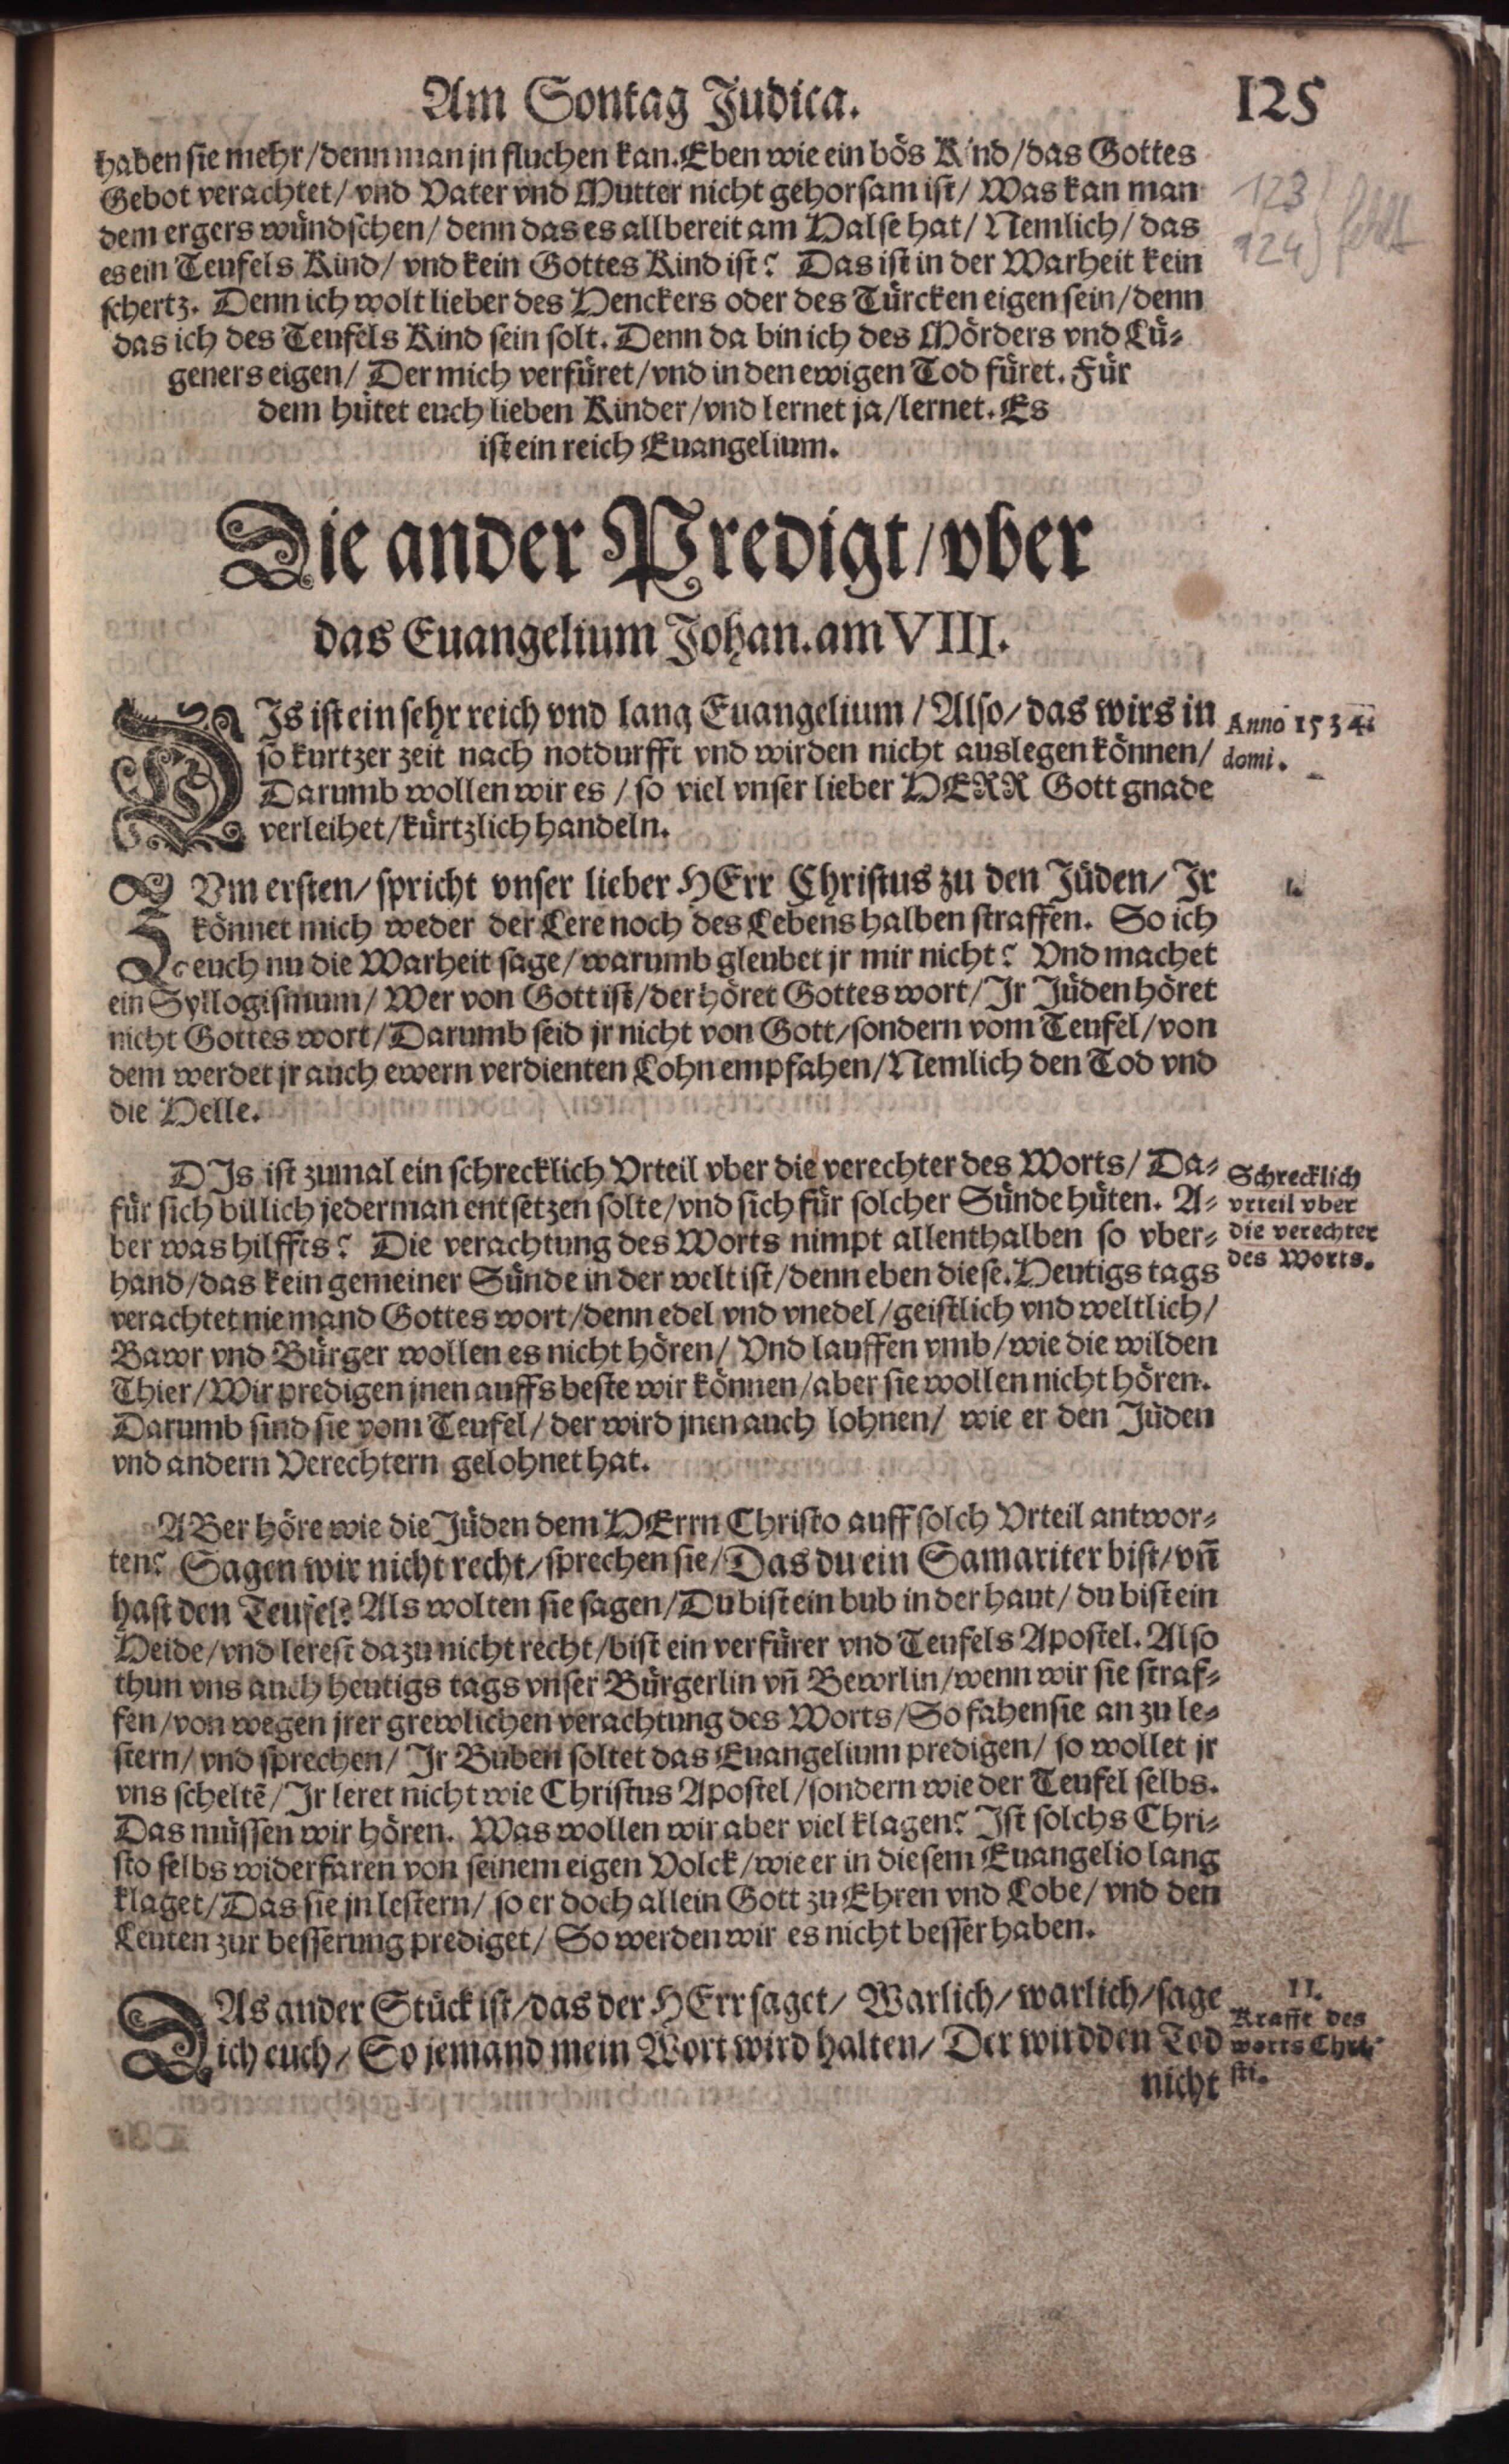 Am Sontag Judica. 125
haben sie mehr/denn man jn fluchen kan. Eben wie ein bös Kind/das Gottes
Gebot verachtet/vnd Vater vnd Mutter nicht gehorsam ist/Was kan man
dem ergers wündschen/denn das es allbereit am Halse hat/Nemlich/das
es ein Teufels Kind/vnd kein Gottes Kind ist? Das ist in der Warheit kein
schertz. Denn ich wolt lieber des Henckers oder des Türcken eigen sein/denn
das ich des Teufels Kind sein solt. Denn da bin ich des Mörders vnd Lü-
geners eigen/Der mich verfüret/vnd in den ewigen Tod füret. Für
dem hütet euch lieben Kinder/vnd lernet ja/lernet. Es
ist ein reich Euangelium.
123
124) fehlt
Die ander Predigt/vber
das Euangelium Johan. am VIII.
DIs ist ein sehr reich vnd lang Euangelium/Also/das wirs in
so kurtzer zeit nach notdurfft vnd wirden nicht auslegen können/
Darumb wollen wir es/so viel vnser lieber HERR Gott gnade
verleihet/kürtzlich handeln.
Anno 1534.
domi.
ZVm ersten/spricht vnser lieber HErr Christus zu den Jüden/Ir
könnet mich weder der Lere noch des Lebens halben straffen. So ich
euch nu die Warheit sage/warumb gleubet jr mir nicht? Vnd machet
ein Syllogismum/Wer von Gott ist/der höret Gottes wort/Ir Jüden höret
nicht Gottes wort/Darumb seid jr nicht von Gott/sondern vom Teufel/von
dem werdet jr auch ewern verdienten Lohn empfahen/Nemlich den Tod vnd
die Helle.
I.
DIs ist zumal ein schrecklich Vrteil vber die verechter des Worts/Da-
für sich billich jederman entsetzen solte/vnd sich für solcher Sünde hüten. A-
ber was hilffts? Die verachtung des Worts nimpt allenthalben so vber-
hand/das kein gemeiner Sünde in der welt ist/denn eben diese. Heutigs tags
verachtet niemand Gottes wort/denn edel vnd vnedel/geistlich vnd weltlich/
Bawr vnd Bürger wollen es nicht hören/Vnd lauffen vmb/wie die wilden
Thier/Wir predigen jnen auffs beste wir können/aber sie wollen nicht hören.
Darumb sind sie vom Teufel/der wird jnen auch lohnen/wie er den Jüden
vnd andern Verechtern gelohnet hat.
Schrecklich
vrteil vber
die verechter
des Worts.
ABer höre wie die Jüden dem HErrn Christo auff solch Vrteil antwor-
ten? Sagen wir nicht recht/sprechen sie/Das du ein Samariter bist/vn̄
hast den Teufel? Als wolten sie sagen/Du bist ein bub in der haut/du bist ein
Heide/vnd lerest dazu nicht recht/bist ein verfürer vnd Teufels Apostel. Also
thun vns auch heutigs tags vnser Bürgerlin vn̄ Bewrlin/wenn wir sie straf-
fen/von wegen jrer grewlichen verachtung des Worts/So fahen sie an zu le-
stern/vnd sprechen/Ir Buben soltet das Euangelium predigen/so wollet jr
vns scheltē/Ir leret nicht wie Christus Apostel/sondern wie der Teufel selbs.
Das müssen wir hören. Was wollen wir aber viel klagen? Ist solchs Chri-
sto selbs widerfaren von seinem eigen Volck/wie er in diesem Euangelio lang
klaget/Das sie jn lestern/so er doch allein Gott zu Ehren vnd Lobe/vnd den
Leuten zur besserung prediget/So werden wir es nicht besser haben.
DAs ander Stück ist/das der HErr saget/Warlich/warlich/sage
ich euch/So jemand mein Wort wird halten/Der wird den Tod
nicht
II.
Krafft des
worts Chri-
sti.